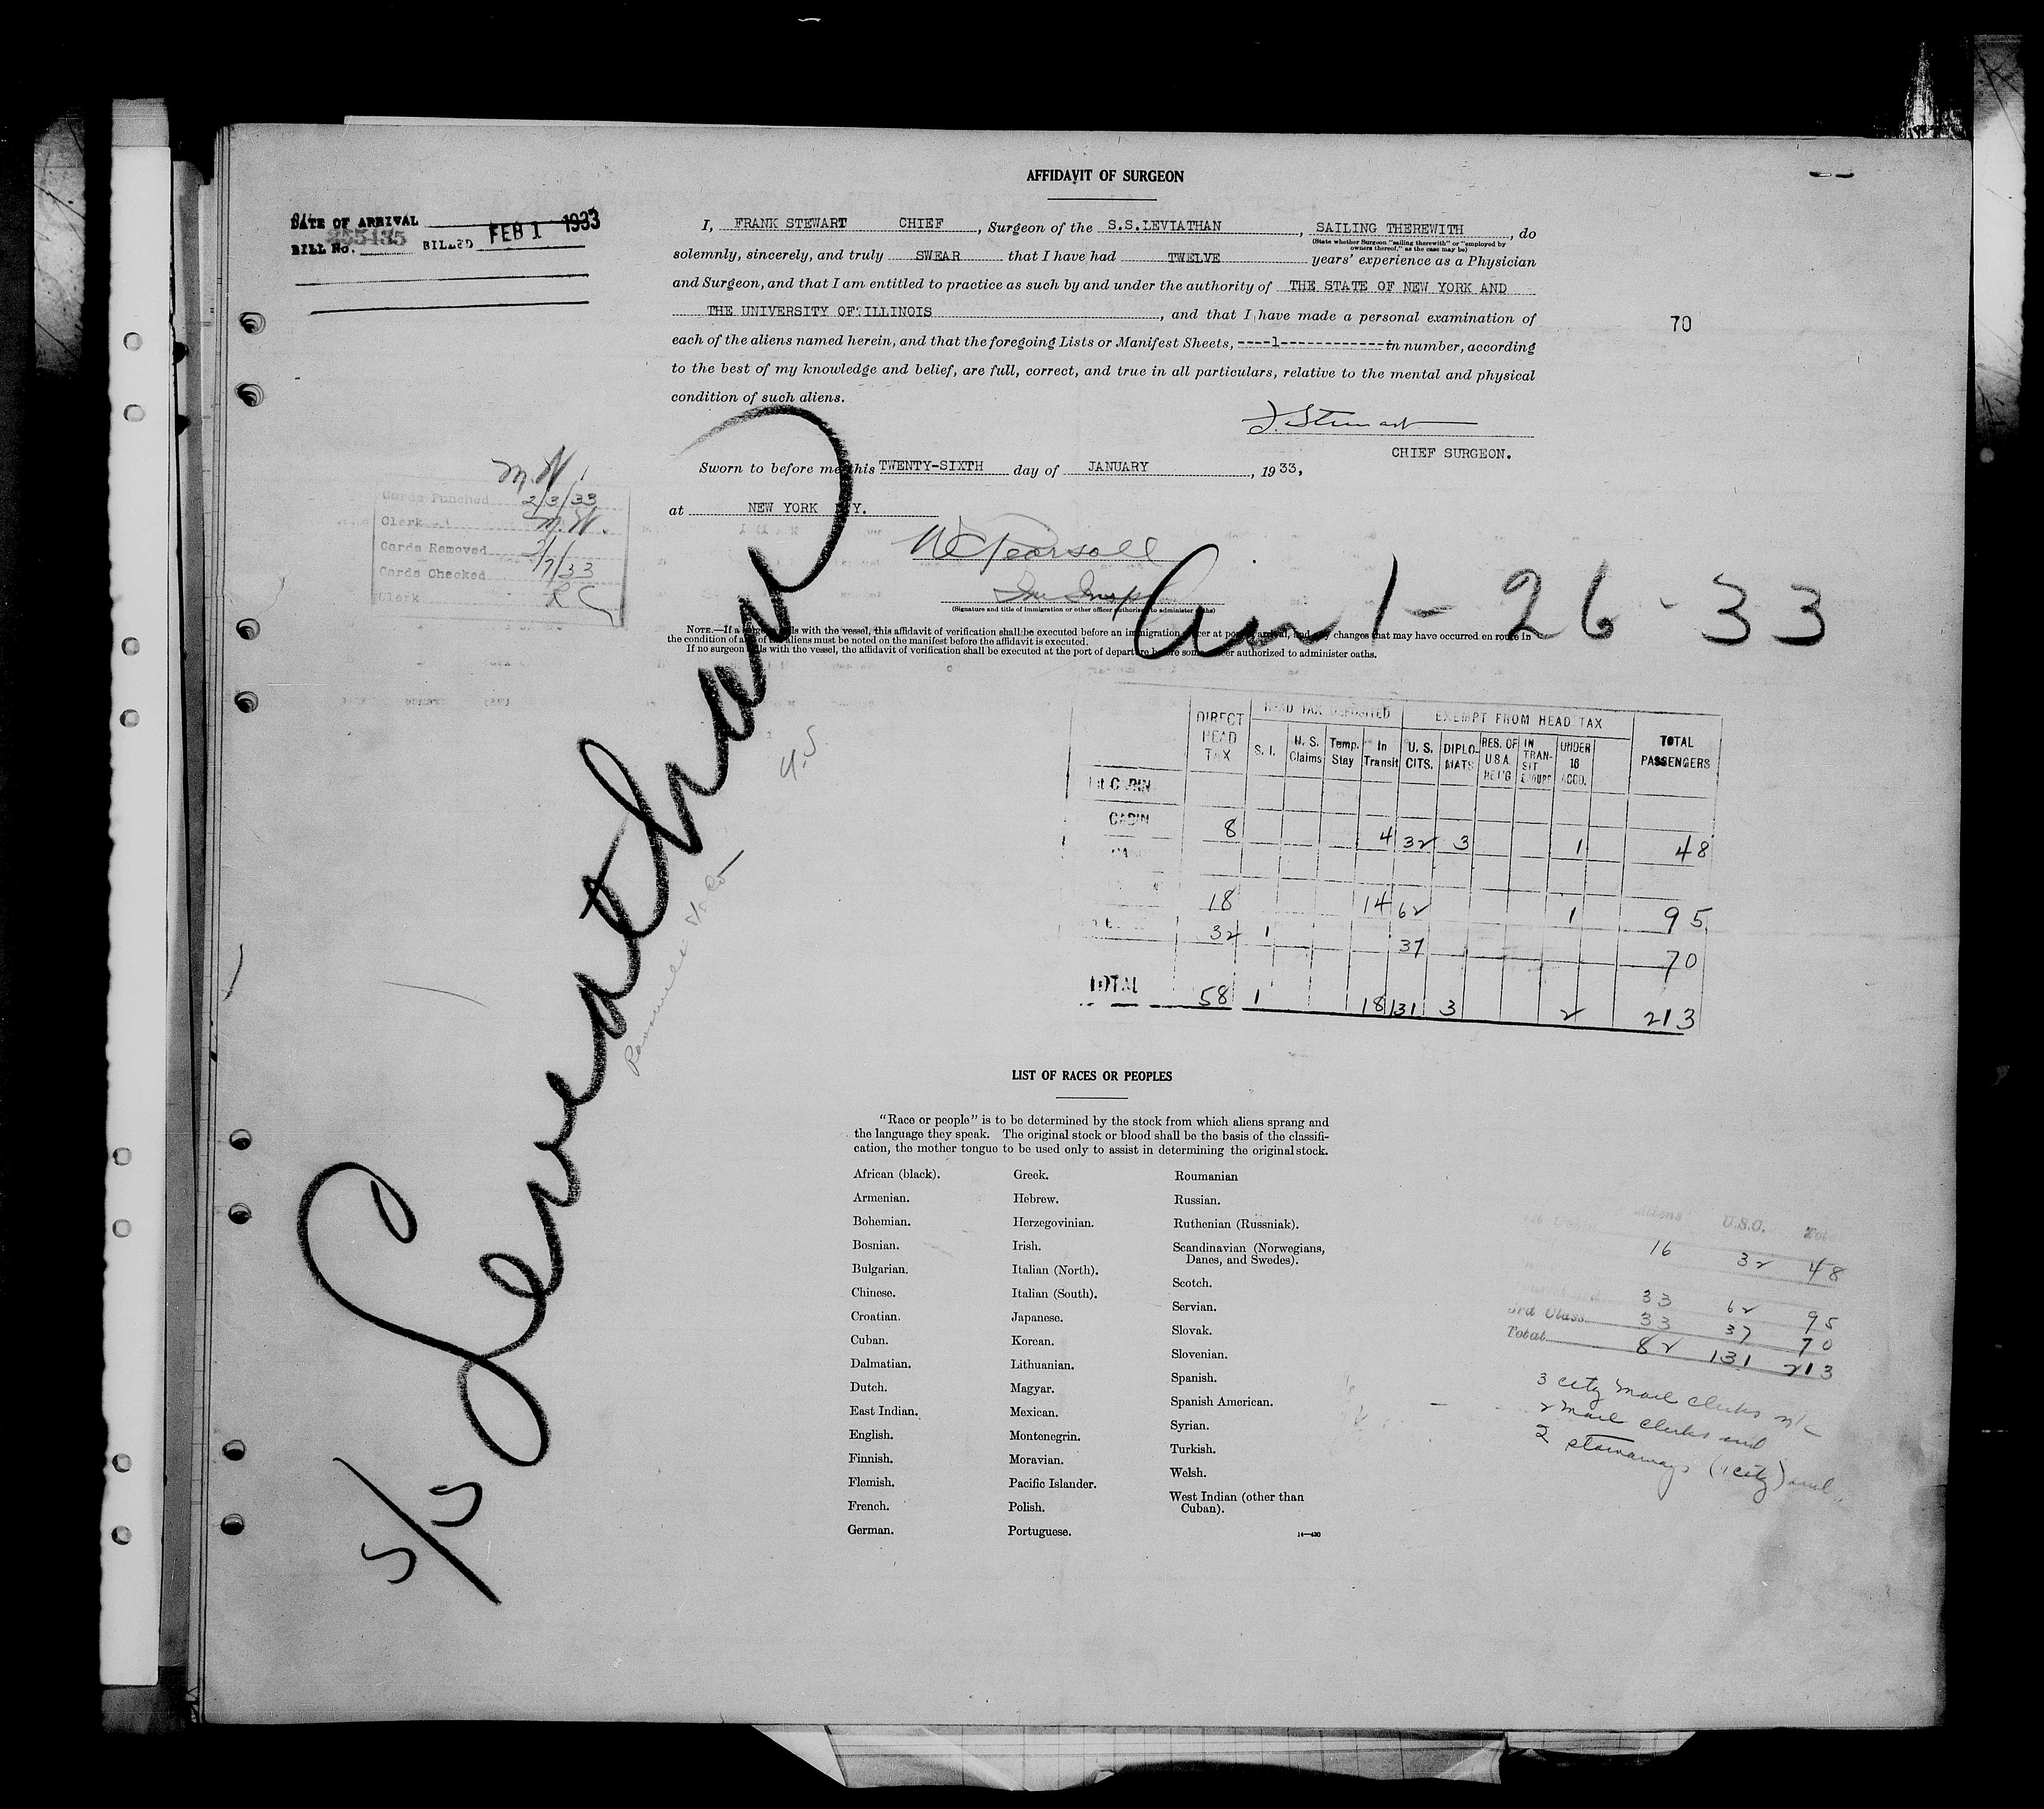 AFFIDAVIT OF SURGEON
DATE OF ARRIVAL
BILL No. 255435 BILLED FEB 1 1933
I, FRANK STEWART CHIEF, Surgeon of the S.S.LEVIATHAN, SAILING THEREWITH, do
(State whether Surgeon "sailing therewith" or "employed by
owners thereof," as the case may be)
solemnly, sincerely, and truly SWEAR that I have had TWELVE years' experience as a Physician
and Surgeon, and that I am entitled to practice as such by and under the authority of THE STATE OF NEW YORK AND
THE UNIVERSITY OF ILLINOIS, and that I have made a personal examination of
each of the aliens named herein, and that the foregoing Lists or Manifest Sheets, ----1------------in number, according
to the best of my knowledge and belief, are full, correct, and true in all particulars, relative to the mental and physical
condition of such aliens.
70
F. Stewart
CHIEF SURGEON.
Sworn to before me this TWENTY-SIXTH day of JANUARY, 1933,
at NEW YORK N.Y.
M.W.
Cards Punched 2/3/33
Clerk M.W.
Cards Removed
Cards Checked 2/7/33
Clerk
(Signature and title of immigration or other officer authorized to administer oaths)
1-26-33
NOTE.—If a surgeon sails with the vessel, this affidavit of verification shall be executed before an immigration officer at port of arrival, and any changes that may have occurred en route in
the condition of any of the aliens must be noted on the manifest before the affidavit is executed.
If no surgeon sails with the vessel, the affidavit of verification shall be executed at the port of departure before some officer authorized to administer oaths.
S/S Leviathan
U.S.
HEAD TAX DEPOSITED EXEMPT FROM HEAD TAX
DIRECT HEAD TAX S. I. U. S. Claims Temp. Stay In Transit U. S. CITS. DIPLOMATS RES. OF U.S.A. RET'G IN TRANSIT UNDER 16 ACCO. TOTAL PASSENGERS
1st CABIN
CABIN 8 4 32 3 1 48
18 14 62 1 95
32 1 37 70
TOTAL 58 1 18 131 3 2 213
LIST OF RACES OR PEOPLES
"Race or people" is to be determined by the stock from which aliens sprang and
the language they speak. The original stock or blood shall be the basis of the classifi-
cation, the mother tongue to be used only to assist in determining the original stock.
African (black).
Armenian.
Bohemian.
Bosnian.
Bulgarian.
Chinese.
Croatian.
Cuban.
Dalmatian.
Dutch.
East Indian.
English.
Finnish.
Flemish.
French.
German.
Greek.
Hebrew.
Herzegovinian.
Irish.
Italian (North).
Italian (South).
Japanese.
Korean.
Lithuanian.
Magyar.
Mexican.
Montenegrin.
Moravian.
Pacific Islander.
Polish.
Portuguese.
Roumanian
Russian.
Ruthenian (Russniak).
Scandinavian (Norwegians,
Danes, and Swedes).
Scotch.
Servian.
Slovak.
Slovenian.
Spanish.
Spanish American.
Syrian.
Turkish.
Welsh.
West Indian (other than
Cuban).
14—430
Aliens U.S.C. Total
16 32 48
33 62 95
3rd Class 33 37 70
Total 82 131 213
3 city mail clerks
2 mail clerks
2 stowaways (1 city)